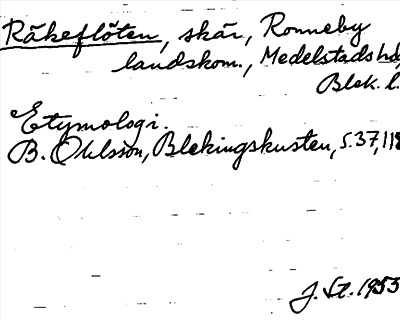 Räkeflöten, skär, Ronneby
landskom., Medelstads hd,
Blek. l.
Etymologi.
B. Ohlsson, Blekingskusten, s. 37, 118
J. St. 1953